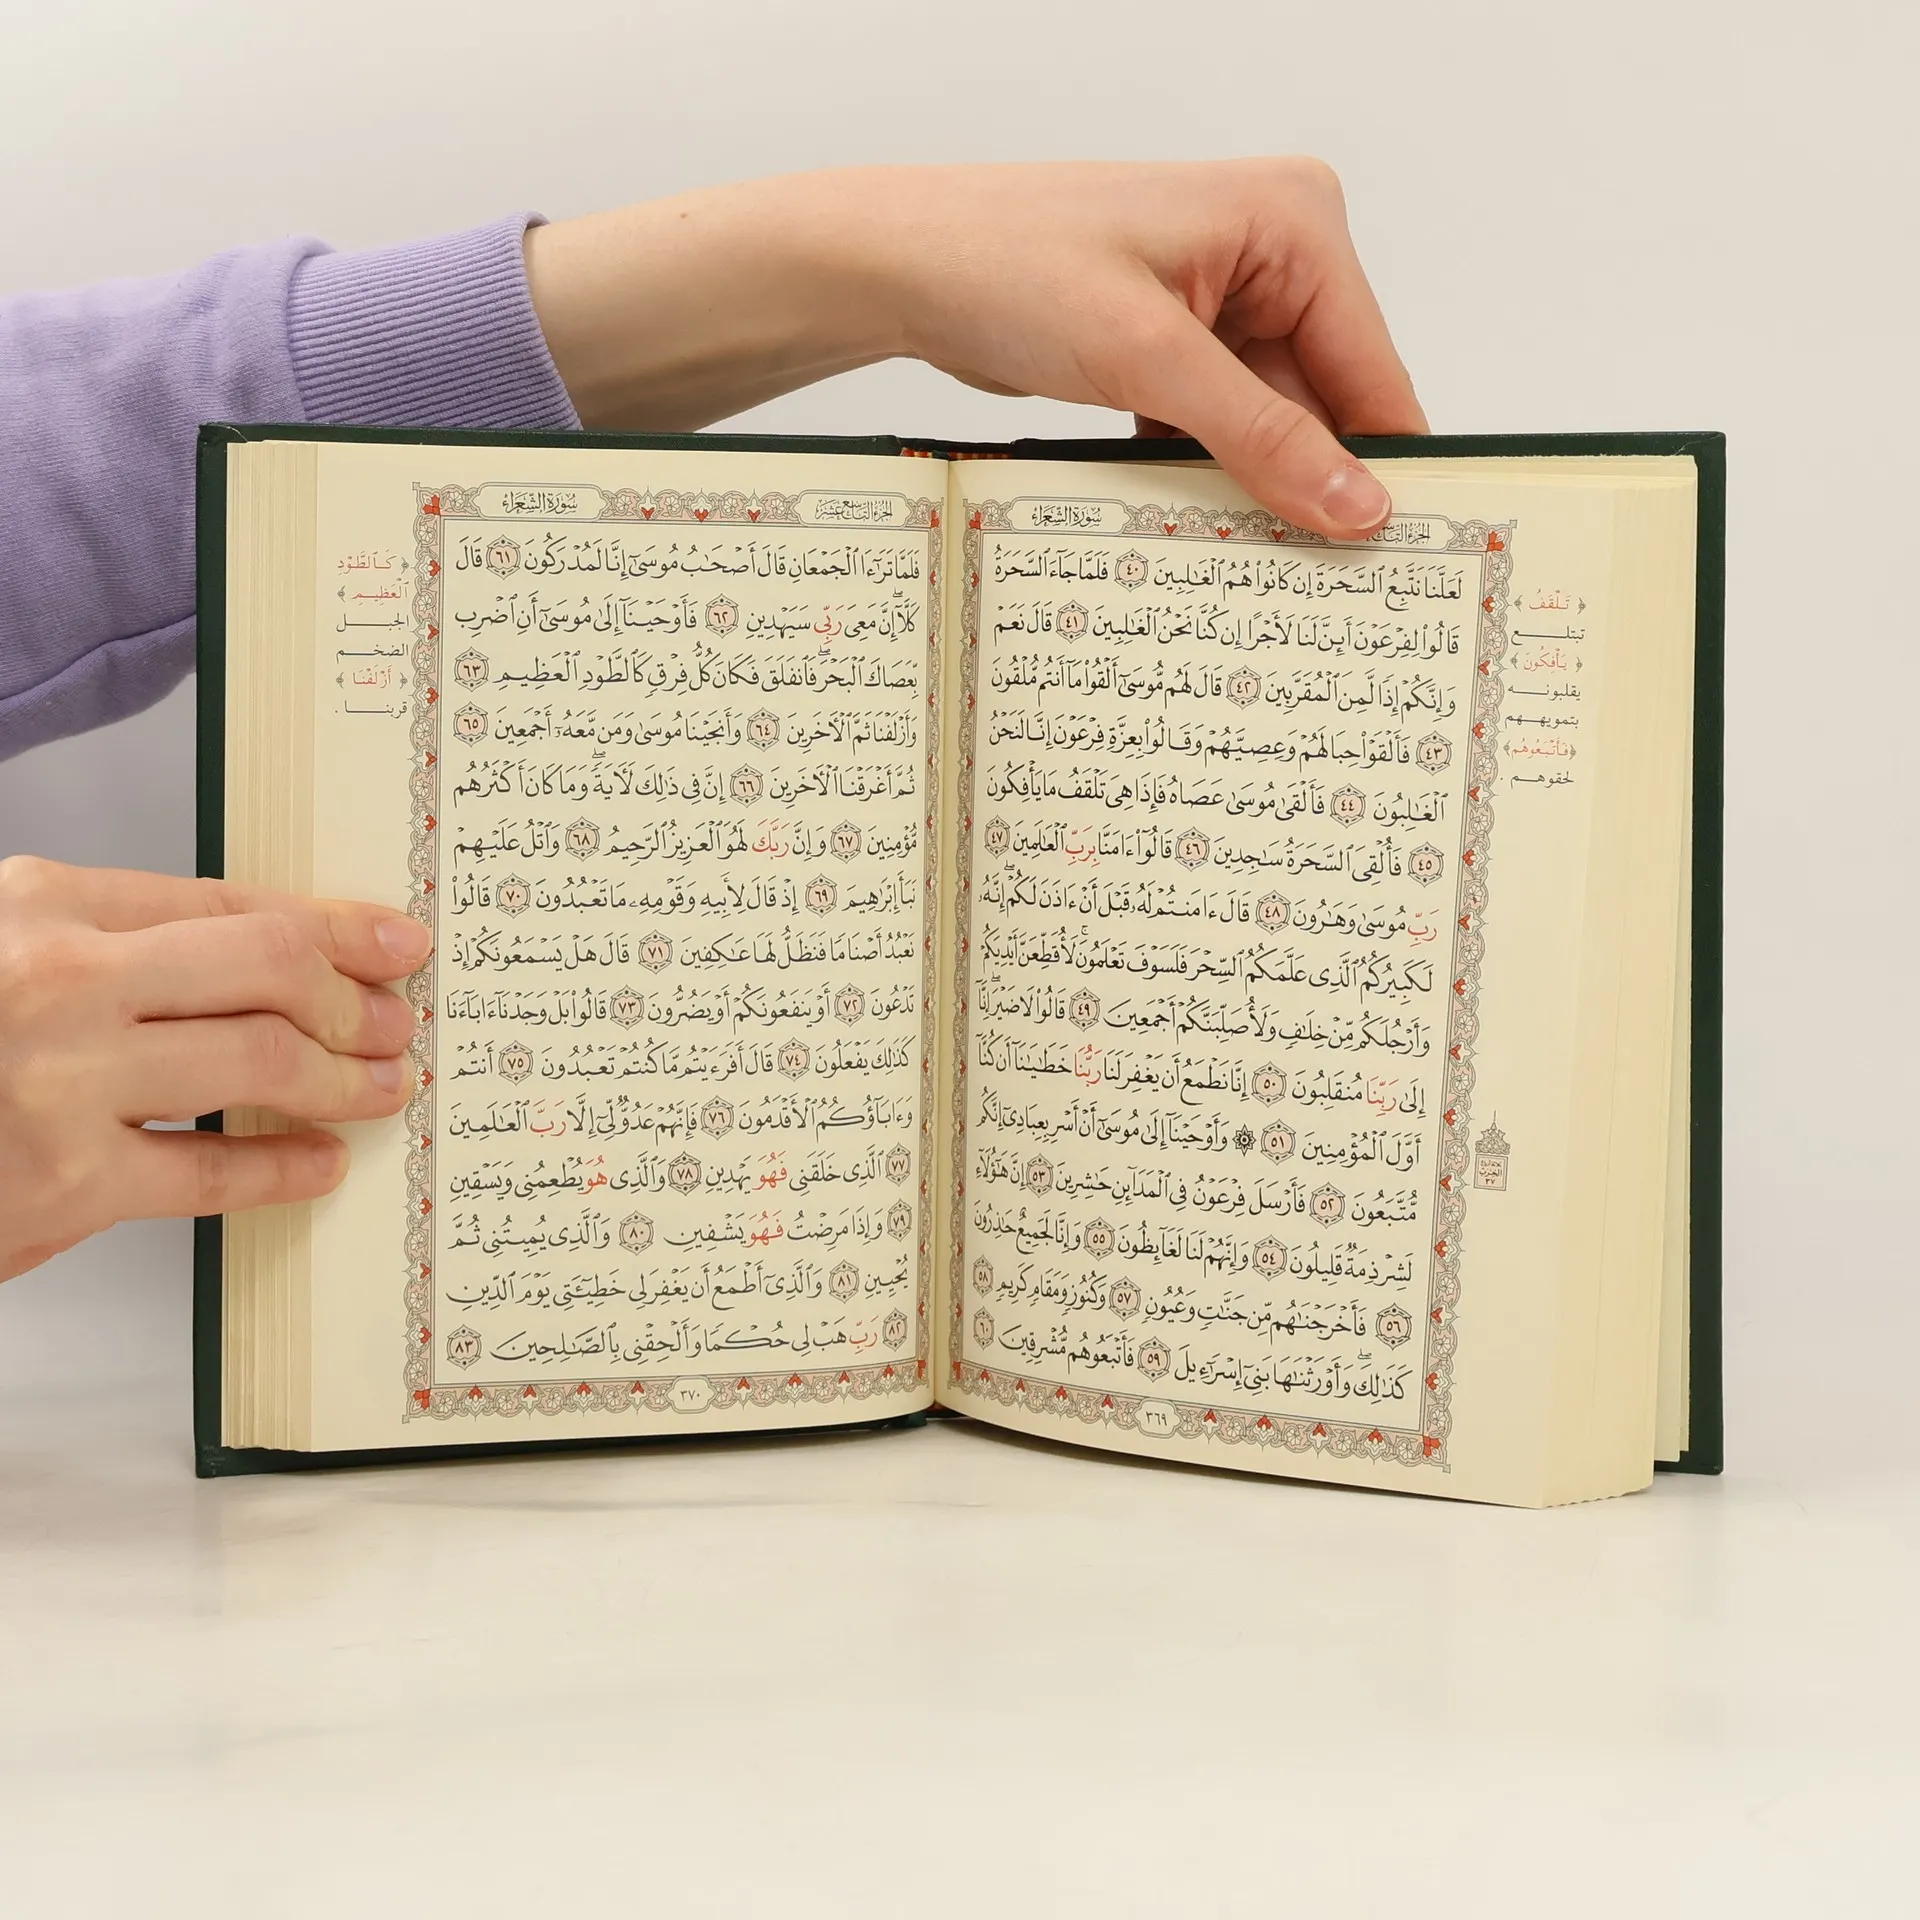 سُورَةُ الشُّعَرَاءِ
لَعَلَّنَا نَتَّبِعُ ٱلسَّحَرَةَ إِن كَانُوا۟ هُمُ ٱلْغَٰلِبِينَ ٤٠ فَلَمَّا جَآءَ ٱلسَّحَرَةُ
قَالُوا۟ لِفِرْعَوْنَ أَئِنَّ لَنَا لَأَجْرًا إِن كُنَّا نَحْنُ ٱلْغَٰلِبِينَ ٤١ قَالَ نَعَمْ
وَإِنَّكُمْ إِذًا لَّمِنَ ٱلْمُقَرَّبِينَ ٤٢ قَالَ لَهُم مُّوسَىٰٓ أَلْقُوا۟ مَآ أَنتُم مُّلْقُونَ
٤٣ فَأَلْقَوْا۟ حِبَالَهُمْ وَعِصِيَّهُمْ وَقَالُوا۟ بِعِزَّةِ فِرْعَوْنَ إِنَّا لَنَحْنُ
ٱلْغَٰلِبُونَ ٤٤ فَأَلْقَىٰ مُوسَىٰ عَصَاهُ فَإِذَا هِىَ تَلْقَفُ مَا يَأْفِكُونَ
٤٥ فَأُلْقِىَ ٱلسَّحَرَةُ سَٰجِدِينَ ٤٦ قَالُوٓا۟ ءَامَنَّا بِرَبِّ ٱلْعَٰلَمِينَ ٤٧
رَبِّ مُوسَىٰ وَهَٰرُونَ ٤٨ قَالَ ءَامَنتُمْ لَهُۥ قَبْلَ أَنْ ءَاذَنَ لَكُمْ ۖ إِنَّهُۥ
لَكَبِيرُكُمُ ٱلَّذِى عَلَّمَكُمُ ٱلسِّحْرَ فَلَسَوْفَ تَعْلَمُونَ ۚ لَأُقَطِّعَنَّ أَيْدِيَكُمْ
وَأَرْجُلَكُم مِّنْ خِلَٰفٍ وَلَأُصَلِّبَنَّكُمْ أَجْمَعِينَ ٤٩ قَالُوا۟ لَا ضَيْرَ ۖ إِنَّآ
إِلَىٰ رَبِّنَا مُنقَلِبُونَ ٥٠ إِنَّا نَطْمَعُ أَن يَغْفِرَ لَنَا رَبُّنَا خَطَٰيَٰنَآ أَن كُنَّآ
أَوَّلَ ٱلْمُؤْمِنِينَ ٥١ ۞ وَأَوْحَيْنَآ إِلَىٰ مُوسَىٰٓ أَنْ أَسْرِ بِعِبَادِىٓ إِنَّكُم
مُّتَّبَعُونَ ٥٢ فَأَرْسَلَ فِرْعَوْنُ فِى ٱلْمَدَآئِنِ حَٰشِرِينَ ٥٣ إِنَّ هَٰٓؤُلَآءِ
لَشِرْذِمَةٌ قَلِيلُونَ ٥٤ وَإِنَّهُمْ لَنَا لَغَآئِظُونَ ٥٥ وَإِنَّا لَجَمِيعٌ حَٰذِرُونَ
٥٦ فَأَخْرَجْنَٰهُم مِّن جَنَّٰتٍ وَعُيُونٍ ٥٧ وَكُنُوزٍ وَمَقَامٍ كَرِيمٍ ٥٨
كَذَٰلِكَ ۖ وَأَوْرَثْنَٰهَا بَنِىٓ إِسْرَٰٓءِيلَ ٥٩ فَأَتْبَعُوهُم مُّشْرِقِينَ ٦٠
٣٦٩
﴿ تَلْقَفُ ﴾
تبتلع
﴿ يَأْفِكُونَ ﴾
يقلبونه
بتمويههم
﴿فَأَتْبَعُوهُم﴾
لحقوهم .
الحزب
٣٧
الجزء التاسع عشر
سُورَةُ الشُّعَرَاءِ
فَلَمَّا تَرَٰٓءَا ٱلْجَمْعَانِ قَالَ أَصْحَٰبُ مُوسَىٰٓ إِنَّا لَمُدْرَكُونَ ٦١ قَالَ
كَلَّآ ۖ إِنَّ مَعِىَ رَبِّى سَيَهْدِينِ ٦٢ فَأَوْحَيْنَآ إِلَىٰ مُوسَىٰٓ أَنِ ٱضْرِب
بِّعَصَاكَ ٱلْبَحْرَ ۖ فَٱنفَلَقَ فَكَانَ كُلُّ فِرْقٍ كَٱلطَّوْدِ ٱلْعَظِيمِ ٦٣
وَأَزْلَفْنَا ثَمَّ ٱلْءَاخَرِينَ ٦٤ وَأَنجَيْنَا مُوسَىٰ وَمَن مَّعَهُۥٓ أَجْمَعِينَ ٦٥
ثُمَّ أَغْرَقْنَا ٱلْءَاخَرِينَ ٦٦ إِنَّ فِى ذَٰلِكَ لَءَايَةً ۖ وَمَا كَانَ أَكْثَرُهُم
مُّؤْمِنِينَ ٦٧ وَإِنَّ رَبَّكَ لَهُوَ ٱلْعَزِيزُ ٱلرَّحِيمُ ٦٨ وَٱتْلُ عَلَيْهِمْ
نَبَأَ إِبْرَٰهِيمَ ٦٩ إِذْ قَالَ لِأَبِيهِ وَقَوْمِهِۦ مَا تَعْبُدُونَ ٧٠ قَالُوا۟
نَعْبُدُ أَصْنَامًا فَنَظَلُّ لَهَا عَٰكِفِينَ ٧١ قَالَ هَلْ يَسْمَعُونَكُمْ إِذْ
تَدْعُونَ ٧٢ أَوْ يَنفَعُونَكُمْ أَوْ يَضُرُّونَ ٧٣ قَالُوا۟ بَلْ وَجَدْنَآ ءَابَآءَنَا
كَذَٰلِكَ يَفْعَلُونَ ٧٤ قَالَ أَفَرَءَيْتُم مَّا كُنتُمْ تَعْبُدُونَ ٧٥ أَنتُمْ
وَءَابَآؤُكُمُ ٱلْأَقْدَمُونَ ٧٦ فَإِنَّهُمْ عَدُوٌّ لِّىٓ إِلَّا رَبَّ ٱلْعَٰلَمِينَ
٧٧ ٱلَّذِى خَلَقَنِى فَهُوَ يَهْدِينِ ٧٨ وَٱلَّذِى هُوَ يُطْعِمُنِى وَيَسْقِينِ
٧٩ وَإِذَا مَرِضْتُ فَهُوَ يَشْفِينِ ٨٠ وَٱلَّذِى يُمِيتُنِى ثُمَّ
يُحْيِينِ ٨١ وَٱلَّذِىٓ أَطْمَعُ أَن يَغْفِرَ لِى خَطِيٓـَٔتِى يَوْمَ ٱلدِّينِ
٨٢ رَبِّ هَبْ لِى حُكْمًا وَأَلْحِقْنِى بِٱلصَّٰلِحِينَ ٨٣
٣٧٠
﴿ كَٱلطَّوْدِ
ٱلْعَظِيمِ ﴾
الجبل
الضخم
﴿ أَزْلَفْنَا ﴾
قربنا .